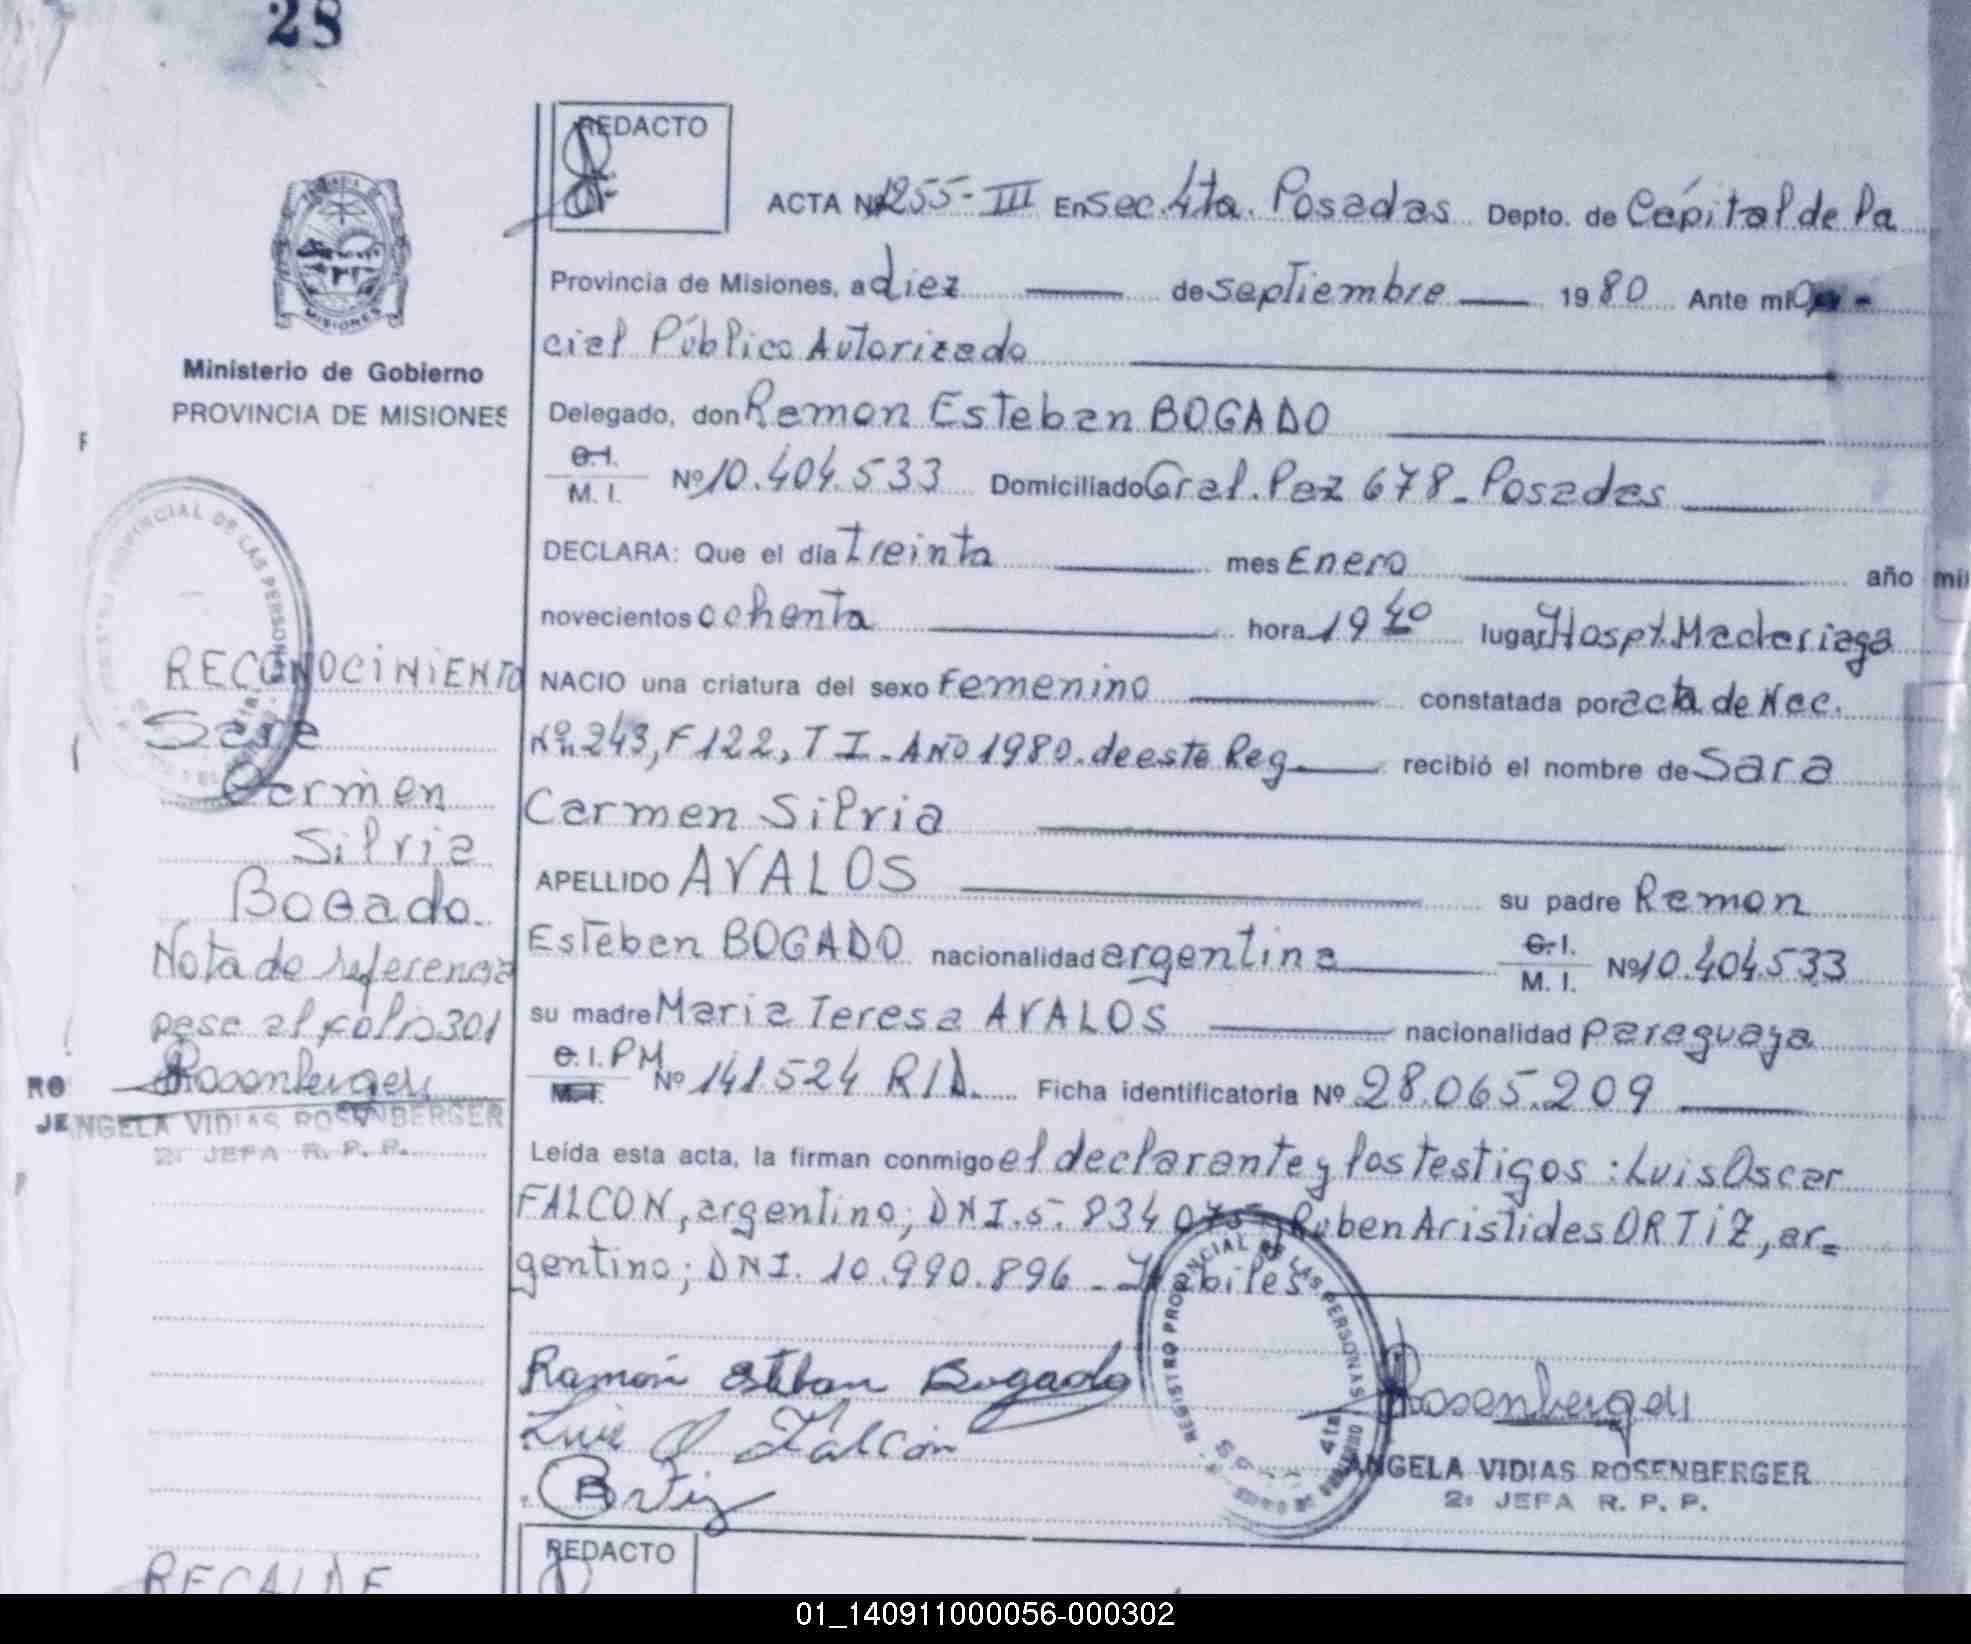 28
REDACTO
ACTA Nº 1255-III En Sec. 4ta. Posadas Depto. de Cápital de la
Provincia de Misiones, a diez de septiembre 1980 Ante mí Ofi-
cial Público Autorizado
Delegado, don Ramon Esteban BOGADO
C.I.
M. I. Nº 10.404.533 Domiciliado Gral. Paz 678 - Posadas
DECLARA: Que el día treinta mes Enero año mil
novecientos ochenta hora 19 40 lugar Hospt. Madariaga
NACIO una criatura del sexo Femenino constatada por acta de Nac.
Nº 243, F 122, T I - AÑO 1980. de este Reg recibió el nombre de Sara
Carmen Silvia
APELLIDO AVALOS su padre Ramon
Esteban BOGADO nacionalidad argentina C.I.
M. I. Nº 10.404.533
su madre Maria Teresa AVALOS nacionalidad paraguaya
C.I. PM
M.I. Nº 141.524 R/D. Ficha identificatoria Nº 28.065.209
Leída esta acta, la firman conmigo el declarante y los testigos : Luis Oscar
FALCON, argentino; DNI. 5. 834 075 y Ruben Aristides ORTIZ, ar=
gentino; DNI. 10.990.896 - Habiles
Ramón Esteban Bogado
Luis O Falcón
Ortiz
REGISTRO PROVINCIAL DE LAS PERSONAS
4ta
Rosenberger
ANGELA VIDIAS ROSENBERGER
2º JEFA R. P. P.
MISIONES
Ministerio de Gobierno
PROVINCIA DE MISIONES
PROVINCIAL DE LAS PERSONAS
RECONOCIMIENTO
Sara
Carmen
Silvia
Bogado.
Nota de referencia
pase al folio 301
Rosenberger
ANGELA VIDIAS ROSENBERGER
2º JEFA R. P. P.
RO
JE
RECALDE
REDACTO
01_140911000056-000302